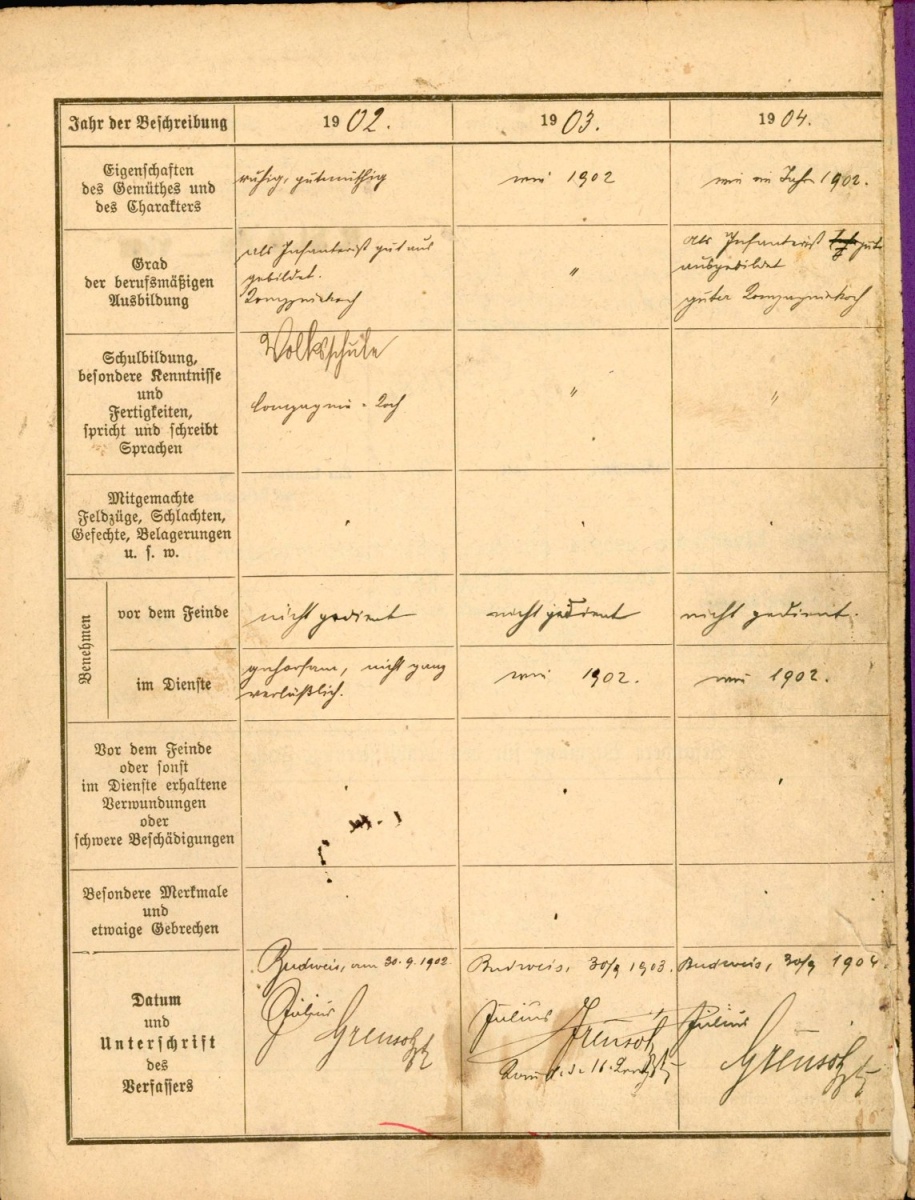 Jahr der Beschreibung
1902.
1903.
1904.
Eigenschaften
des Gemüthes und
des Charakters
ruhig, gutmüthig
wie 1902
wie im Jahre 1902.
Grad
der berufsmäßigen
Ausbildung
als Infanterist gut aus
gebildet.
Kompagniekoch
"
als Infanterist gut
ausgebildet
guter Kompagniekoch
Schulbildung,
besondere Kenntnisse
und
Fertigkeiten,
spricht und schreibt
Sprachen
Volksschule
Compagnie-Koch
"
"
Mitgemachte
Feldzüge, Schlachten,
Gefechte, Belagerungen
u. s. w.
Benehmen
vor dem Feinde
nicht gedient
nicht gedient
nicht gedient.
im Dienste
gehorsam, nicht ganz
verläßlich.
wie 1902.
wie 1902.
Vor dem Feinde
oder sonst
im Dienste erhaltene
Verwundungen
oder
schwere Beschädigungen
Besondere Merkmale
und
etwaige Gebrechen
Datum
und
Unterschrift
des
Verfassers
Budweis, am 30.9.1902
Julius
Budweis, 30/9 1903.
Julius
Budweis, 30/9 1904.
Julius